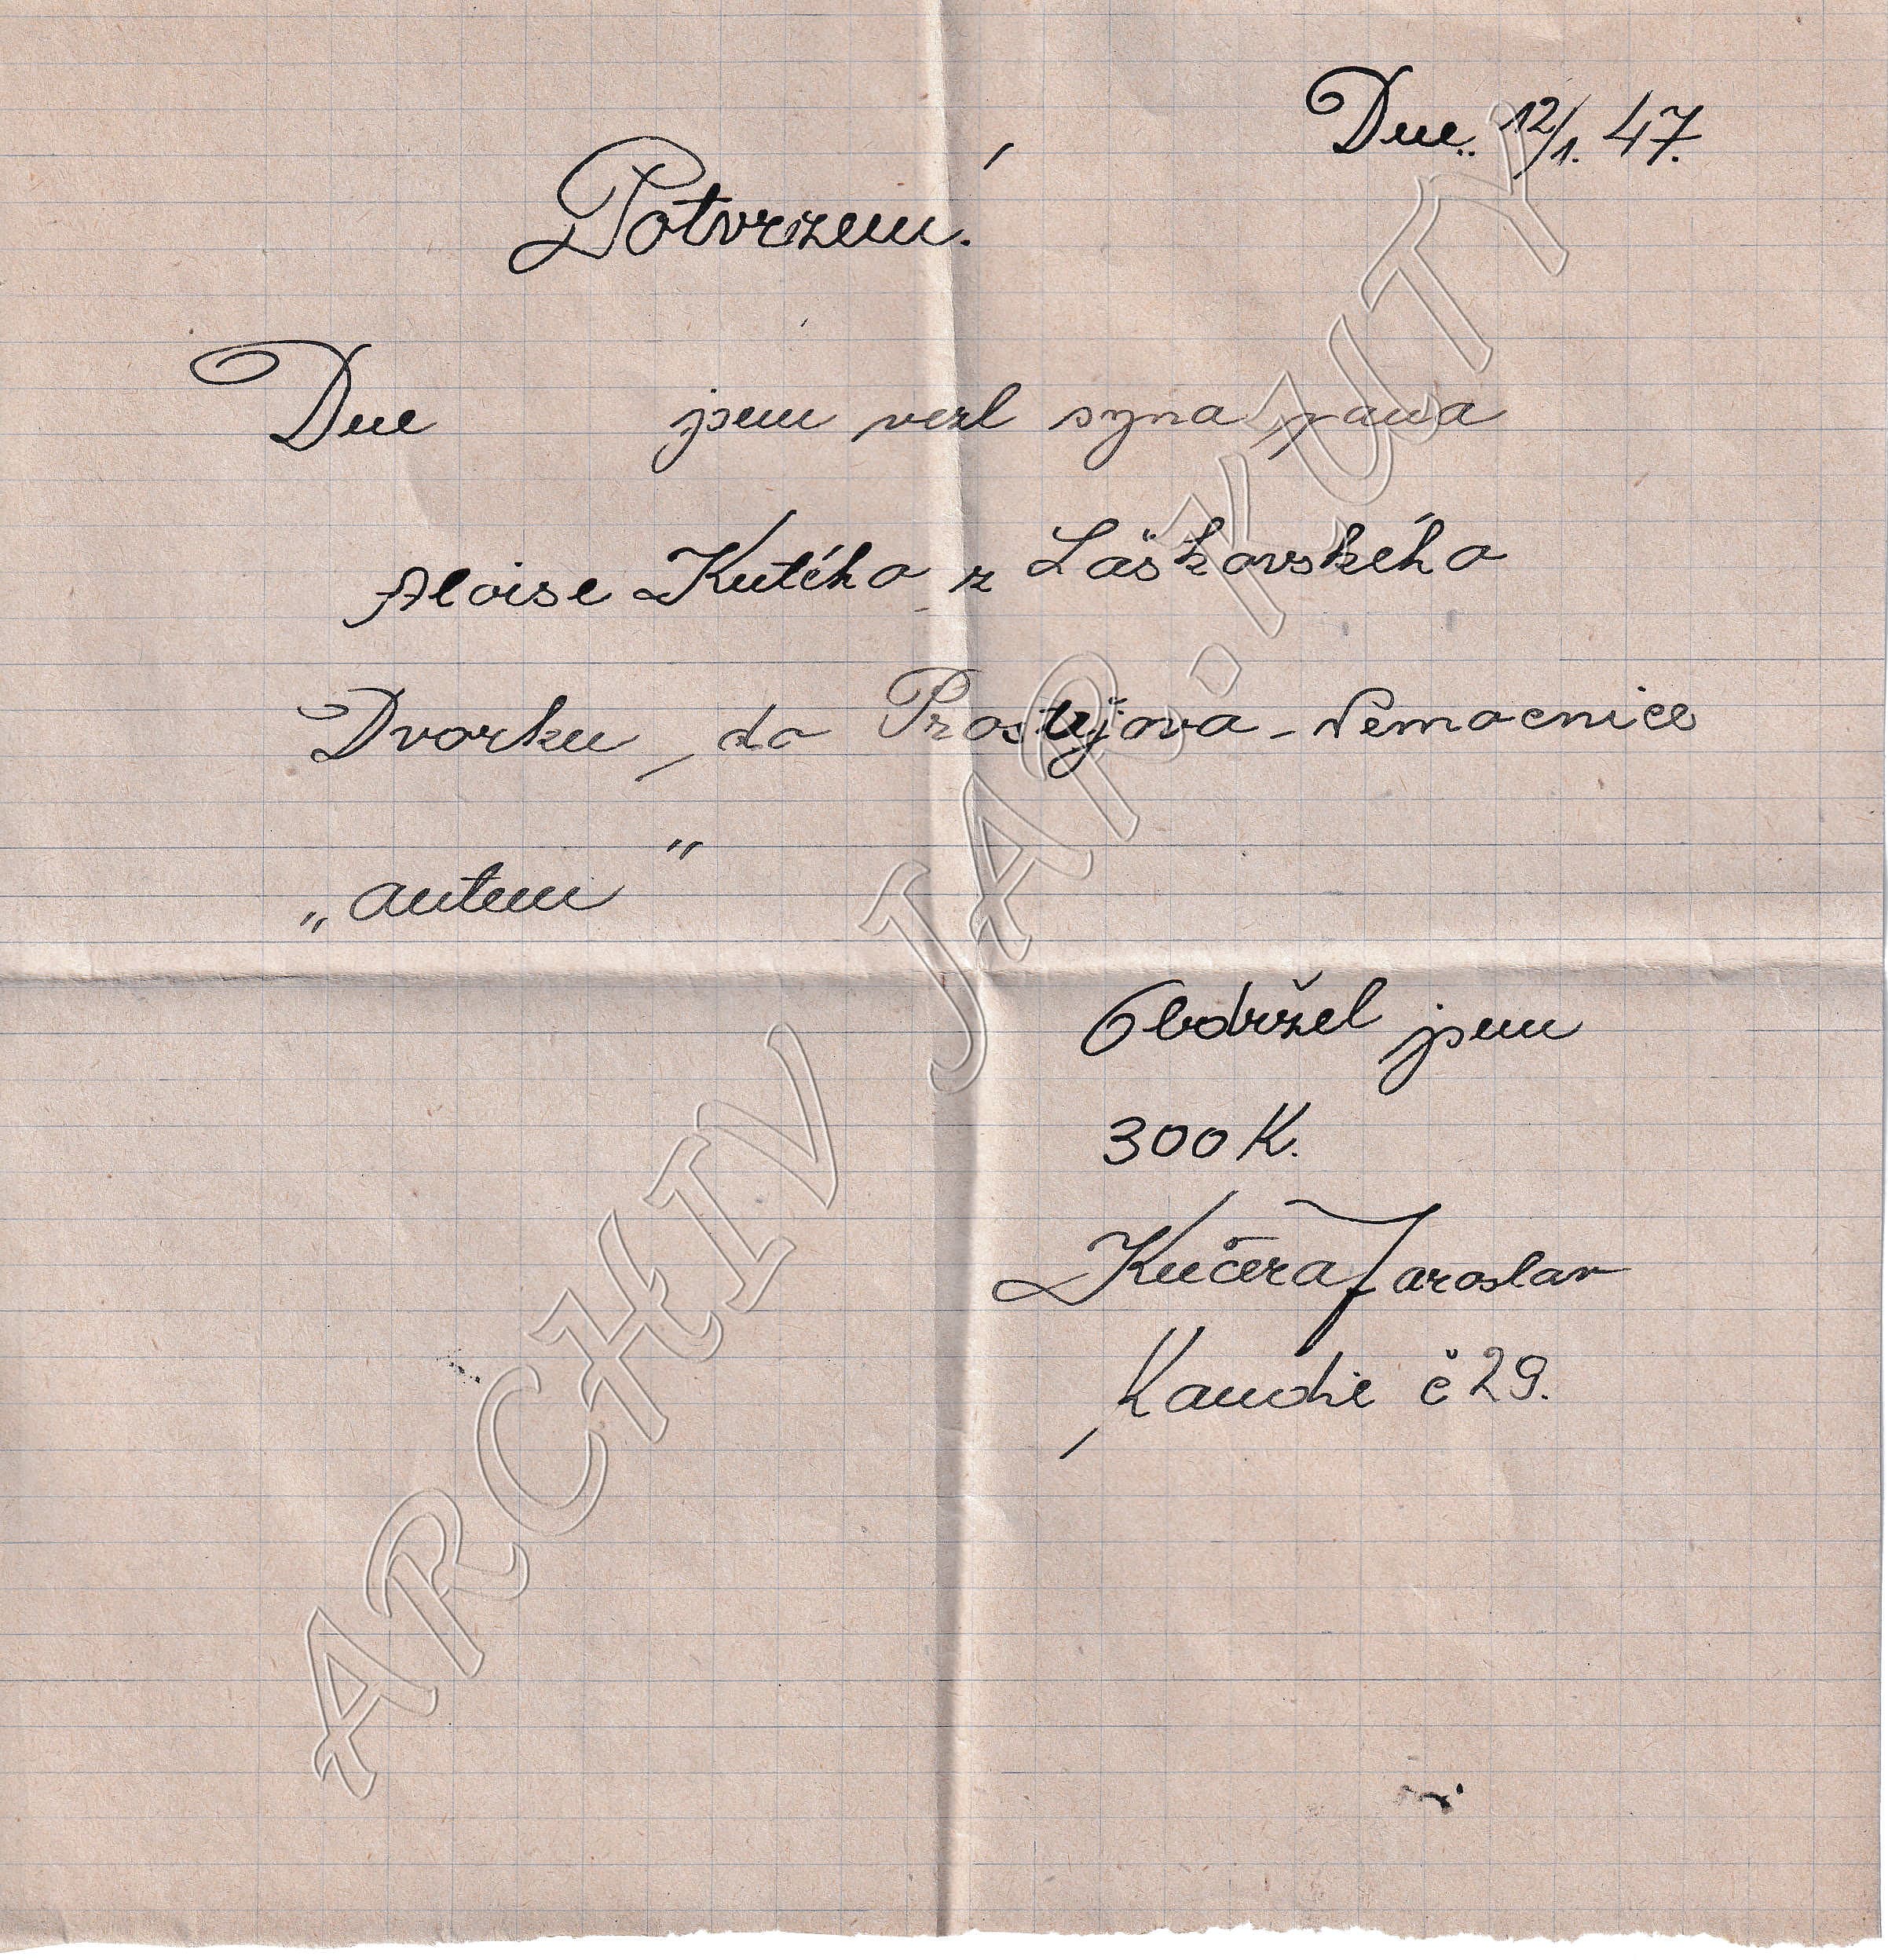 Dne.. 12/1. 47.
Potvrzení.
Dne jsem vezl syna pana
Aloise Kutého z Láškovského
Dvorku, do Prostějova - Nemocnice
„autem"
Obdržel jsem
300 K.
Kučera Jaroslav
Kandie č 29.
ARCHIV JAR. KUTÝ